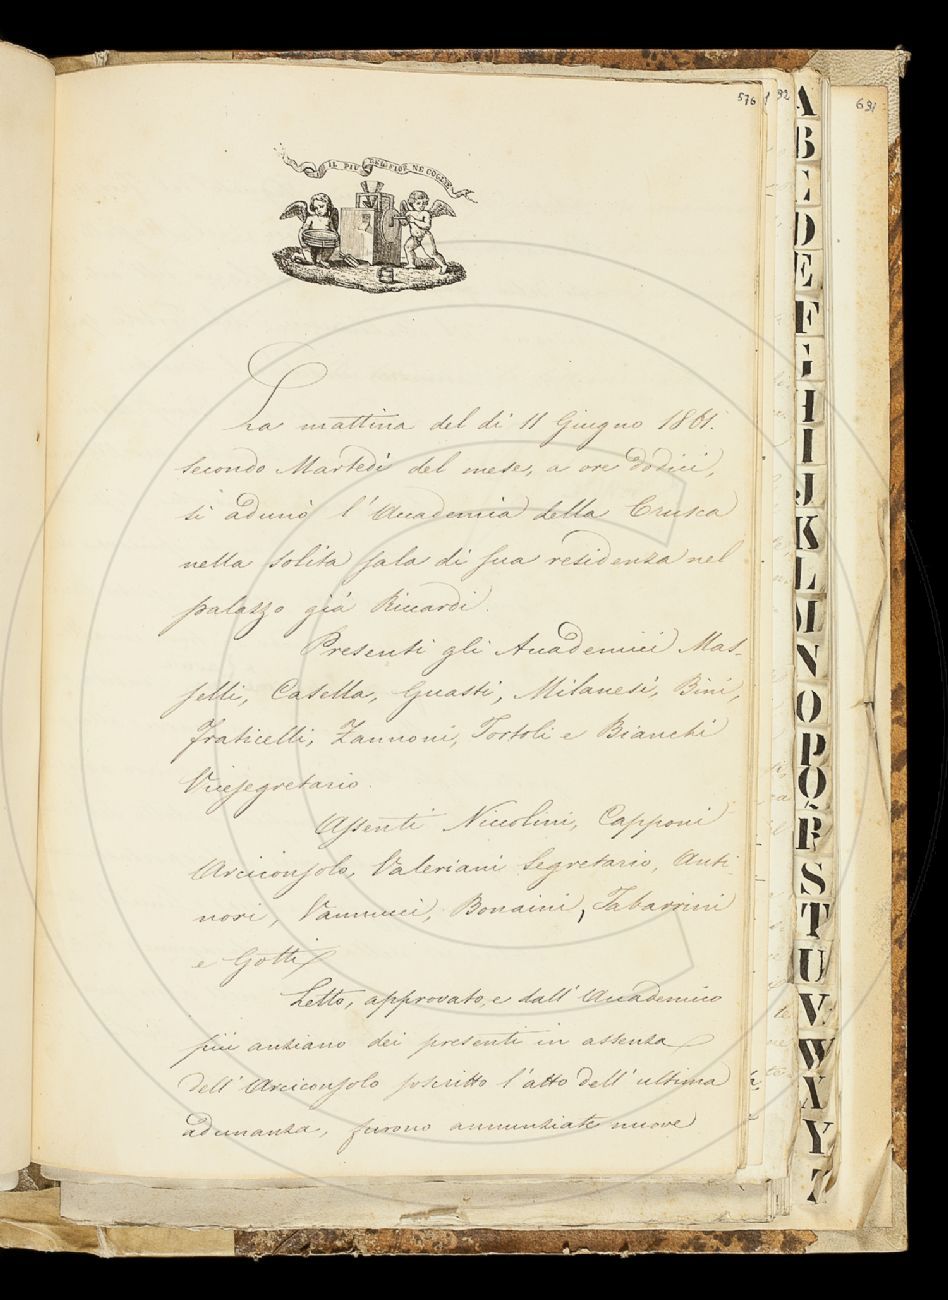 576
92
691
IL PIÙ BEL FIOR NE COGLIE
La mattina del dì 11 Giugno 1861.
secondo Martedì del mese, a ore dodici,
si adunò l'Accademia della Crusca
nella solita sala di sua residenza nel
palazzo già Riccardi.
Presenti gli Accademici Mas-
selli, Casella, Guasti, Milanesi, Bini,
Fraticelli, Zannoni, Tortoli e Bianchi
Vicesegretario.
Assenti Niccolini, Capponi
Arciconsolo, Valeriani Segretario, Anti-
nori, Vannucci, Bonaini, Tabarrini
e Gotti
Letto, approvato, e dall'Accademico
più anziano dei presenti in assenza
dell'Arciconsolo soscritto l'atto dell'ultima
adunanza, furono annunziate nuove
A
B
C
D
E
F
G
H
I
J
K
L
M
N
O
P
Q
R
S
T
U
V
W
X
Y
Z